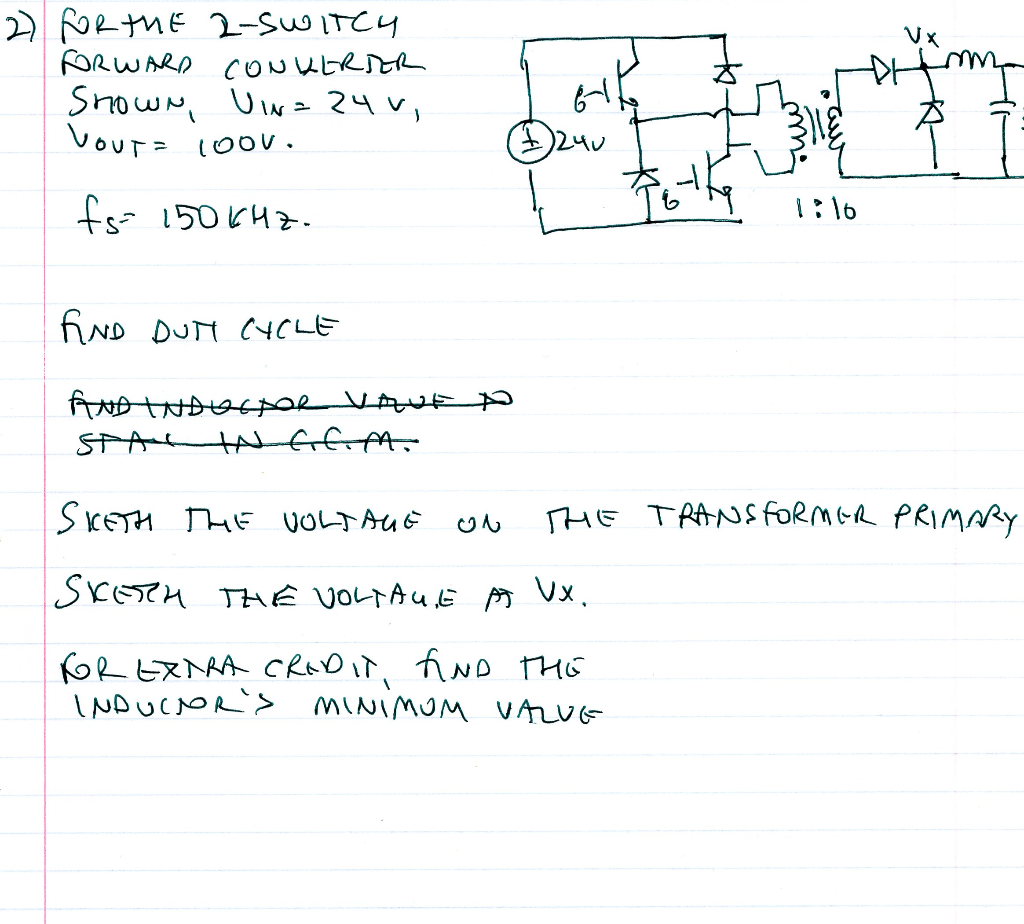 2) FOR THE 2-SWITCH
FORWARD CONVERTER
SHOWN, VIN = 24 V,
VOUT = 100V.
fs = 150 KHz.
Vx
6
24V
6
1:10
FIND DUTY CYCLE
FIND INDUCTOR VALUE TO
STAY IN C.C.M.
SKETH THE VOLTAGE ON THE TRANSFORMER PRIMARY
SKETCH THE VOLTAGE AT VX.
FOR EXTRA CREDIT, FIND THE
INDUCTOR'S MINIMUM VALUE